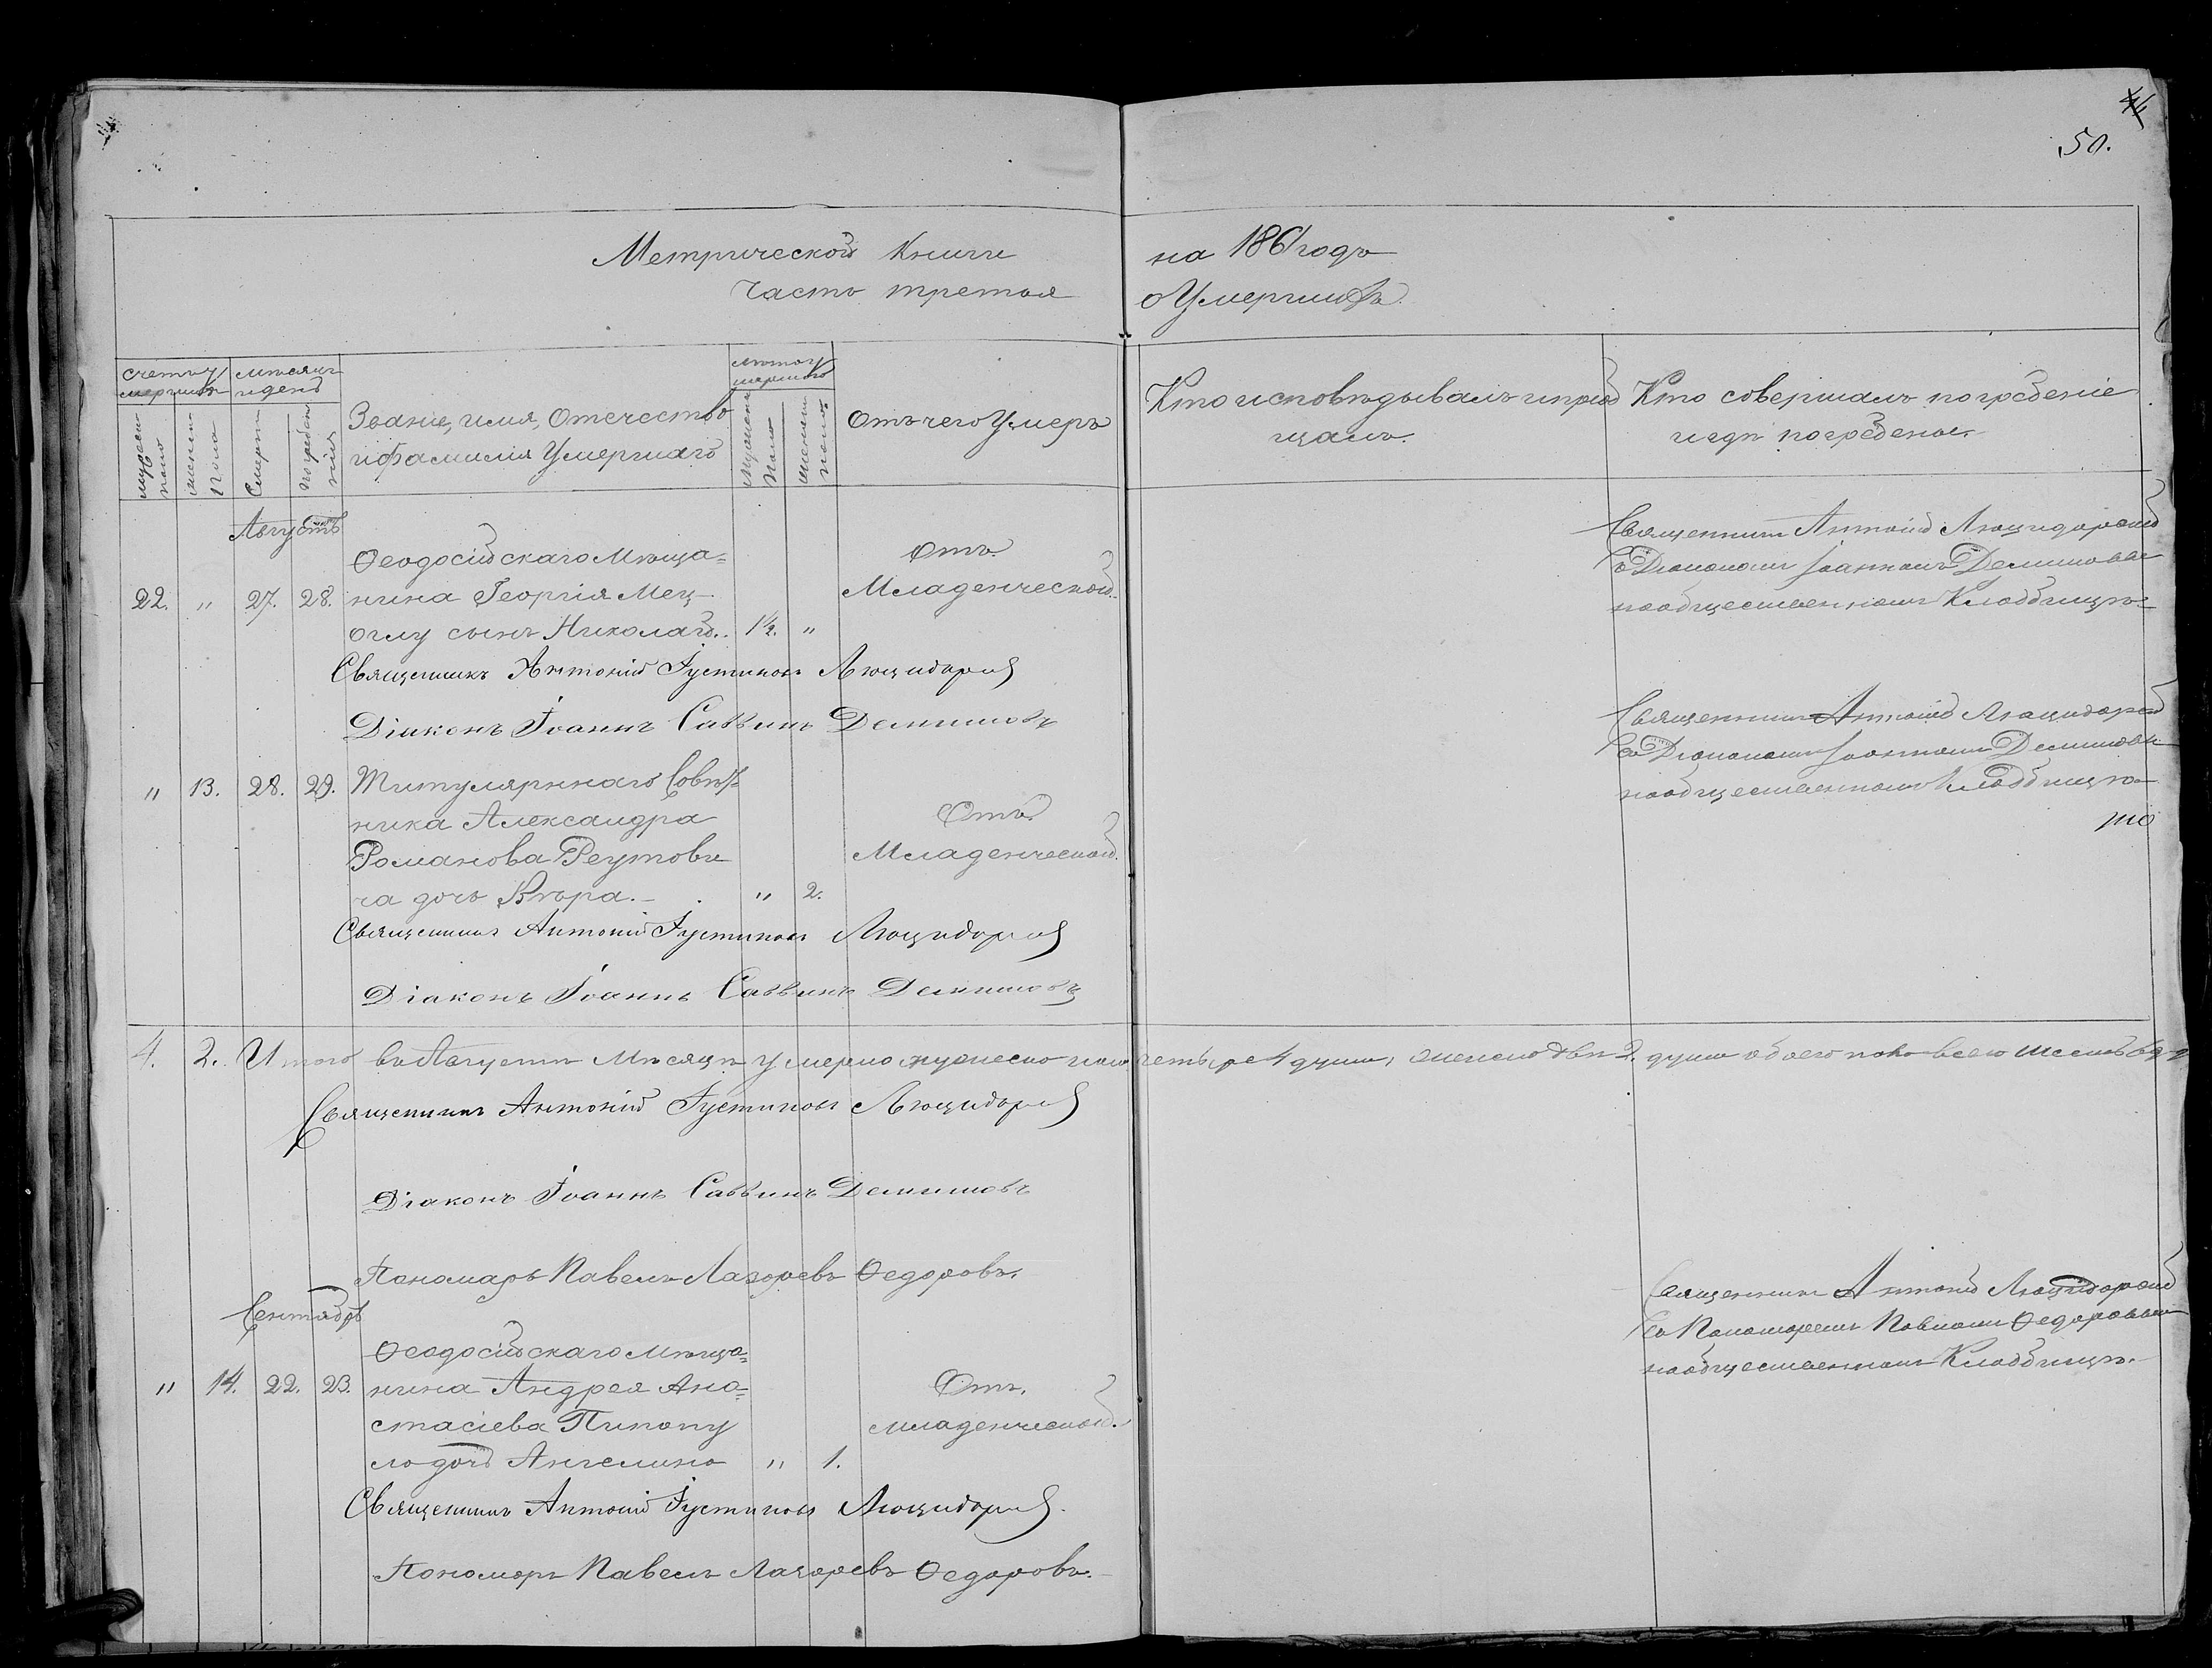 50.
Метрической Книги на 1861 годъ
Часть третья о Умершихъ
счетъ умершихъ
мѣсяцъ и день
лѣта умершаго
мужеска пола
женска пола
Смерти
погребенія
Званіе, имя, Отечество
и фамилія Умершаго
Мужеска пола
женска пола
Отъ чего Умеръ
Кто исповѣдывалъ и приоб
щалъ.
Кто совершалъ погребеніе
и гдѣ погребены.
Августъ
Ѳеодосійскаго Мѣща=
22. " 27. 28. нина Георгія Мец
оглу сынъ Николай. 1½. "
Отъ
Младенческой.
Священникъ Антоній Люцидарскій
съ Діакономъ Іоанномъ Демишовымъ
на общественномъ Кладбищѣ
Священникъ Антоній Іустиновъ Люцидарскій
Діаконъ Іоаннъ Саввинъ Демишовъ
" 13. 28. 29. Титулярнаго Совѣт=
ника Александра
Романова Реутови
ча дочь Вѣра. " 2.
Отъ
Младенческой.
Священникъ Антоній Люцидарскій
съ Діакономъ Іоанномъ Демишовымъ
на общественномъ Кладбищѣ
Священникъ Антоній Іустиновъ Люцидарскій
Діаконъ Іоаннъ Саввинъ Демишовъ
4. 2. Итого въ Августѣ Мѣсяцѣ умерло мужеска пола четыре 4 души, женска двѣ 2. души обоего пола всего шесть
Священникъ Антоній Іустиновъ Люцидарскій
Діаконъ Іоаннъ Саввинъ Демишовъ
Пономарь Павелъ Лазаревъ Ѳедоровъ.
Сентябрь
Ѳеодосійскаго Мѣща=
" 14. 22. 23. нина Андрея Ана=
стасіева Пикопу
ло дочь Ангелина " 1.
Отъ
младенческой.
Священникъ Антоній Люцидарскій
съ Пономаремъ Павломъ Ѳедоровымъ
на общественномъ Кладбищѣ.
Священникъ Антоній Іустиновъ Люцидарскій
Пономарь Павелъ Лазаревъ Ѳедоровъ.